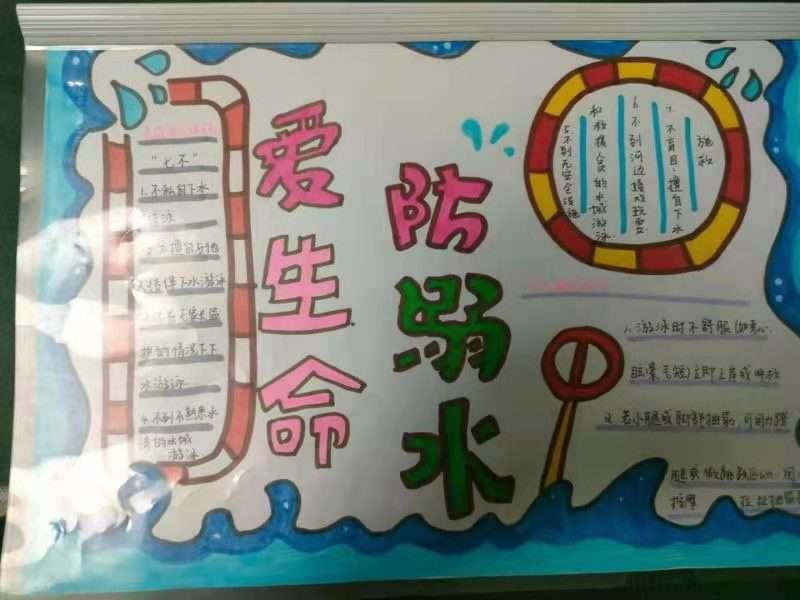 爱生命
防溺水
"七不"
1.不私自下水
游泳
2.不擅自与他
人结伴下水游泳
护的情况下下
水游泳
4.不到不熟悉水
清的水域
游泳
5.不到无安全设施
和救援人员的水域游泳
6.不到河边嬉戏玩耍
7.不盲目、擅自下水
施救
1.游泳时不舒服(如恶心
立即上岸或呼救
2.若小腿或脚部抽筋,可用力蹬
按摩